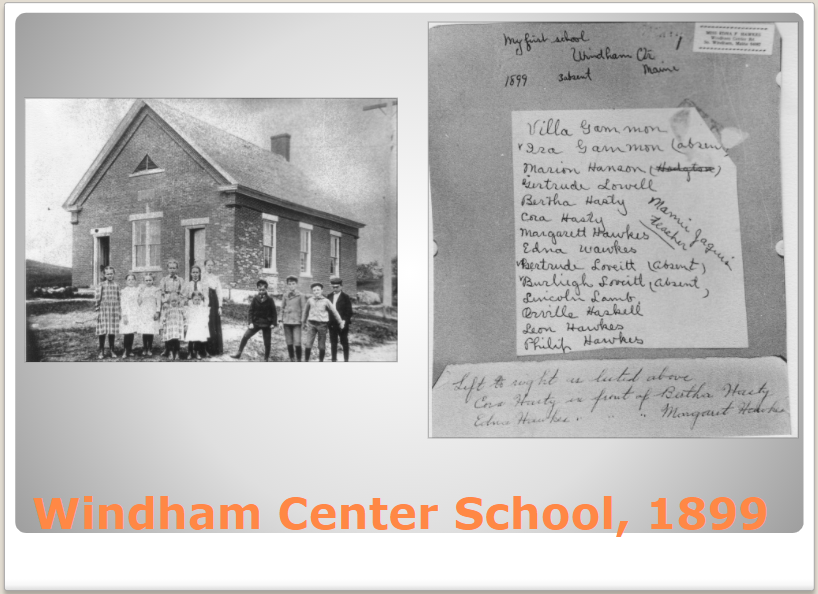 My first school
Windham Ctr
1899 3absent Maine
MISS EDNA F. HAWKES
Windham Center Rd.
So. Windham, Maine
Villa Gammon
Ira Gammon (absen
Marion Hanson (Hodgton)
Gertrude Lowell
Bertha Hasty
Cora Hasty
Margarett Hawkes
Edna Hawkes
Gertrude Loveitt (Absent)
Burleigh Loveitt (Absent)
Lincoln Lamb
Orville Haskell
Leon Hawkes
Philip Hawkes
Mamie Jaques
teacher
Left to right as listed above
Cora Hasty in front of Bertha Hasty
Edna Hawkes " " " Margaret Hawkes
Windham Center School, 1899